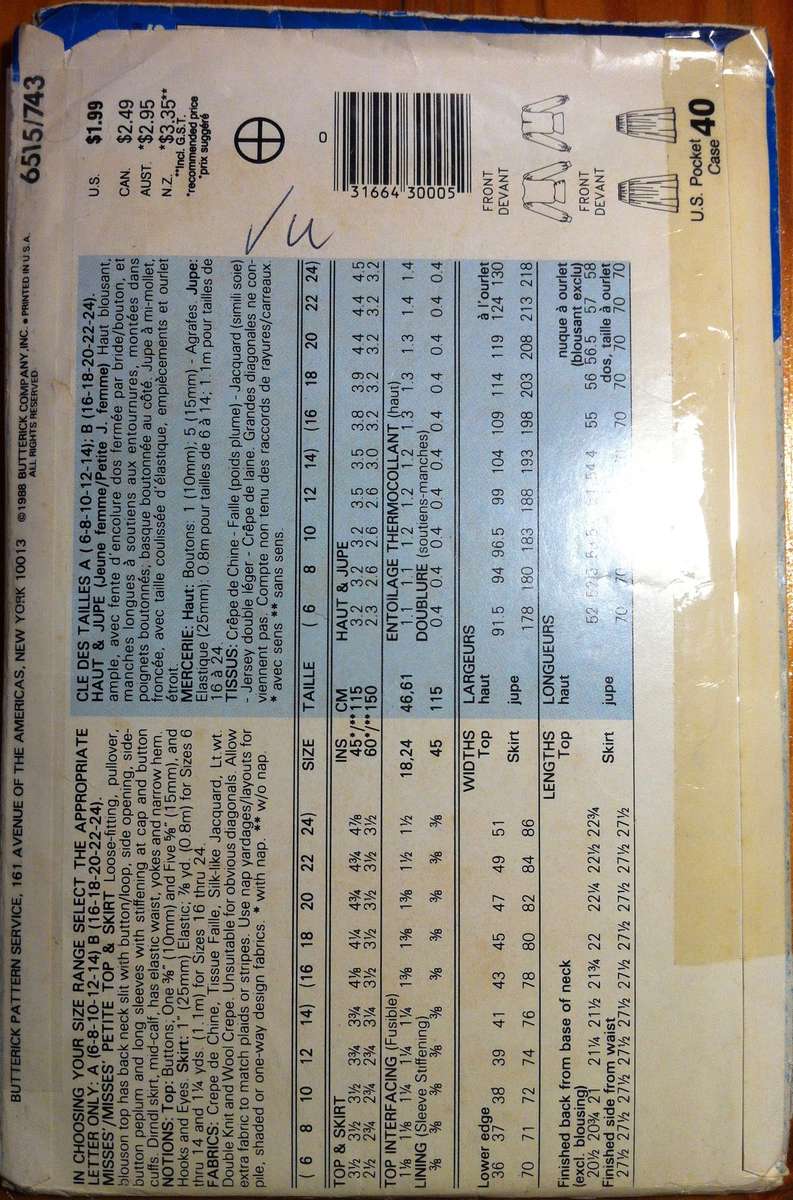 BUTTERICK PATTERN SERVICE, 161 AVENUE OF THE AMERICAS, NEW YORK 10013 ©1988 BUTTERICK COMPANY, INC. • PRINTED IN U.S.A.
ALL RIGHTS RESERVED
6515/743
IN CHOOSING YOUR SIZE RANGE SELECT THE APPROPRIATE
LETTER ONLY: A (6-8-10-12-14) B (16-18-20-22-24).
MISSES'/MISSES' PETITE TOP & SKIRT Loose-fitting, pullover,
blouson top has back neck slit with button/loop, side opening, side-
button peplum and long sleeves with stiffening at cap and button
cuffs. Dirndl skirt, mid-calf, has elastic waist, yokes and narrow hem.
NOTIONS: Top: Buttons, One ⅜" (10mm) and Five ⅝" (15mm), and
Hooks and Eyes. Skirt: 1" (25mm) Elastic; ⅞ yd. (0.8m) for Sizes 6
thru 14 and 1¼ yds. (1.1m) for Sizes 16 thru 24.
FABRICS: Crepe de Chine, Tissue Faille, Silk-like Jacquard, Lt wt.
Double Knit and Wool Crepe. Unsuitable for obvious diagonals. Allow
extra fabric to match plaids or stripes. Use nap yardages/layouts for
pile, shaded or one-way design fabrics. * with nap. ** w/o nap.
CLE DES TAILLES A ( 6-8-10-12-14); B (16-18-20-22-24).
HAUT & JUPE (Jeune femme/Petite J. femme) Haut blousant,
ample, avec fente d'encolure dos fermée par bride/bouton, et
manches longues à soutiens aux entournures, montées dans
poignets boutonnés; basque boutonnée au côté. Jupe à mi-mollet,
froncée, avec taille coulissée d'élastique, empiècements et ourlet
étroit.
MERCERIE: Haut: Boutons: 1 (10mm); 5 (15mm) - Agrafes. Jupe:
Elastique (25mm): 0.8m pour tailles de 6 à 14; 1.1m pour tailles de
16 à 24.
TISSUS: Crêpe de Chine - Faille (poids plume) - Jacquard (simili soie)
- Jersey double léger - Crêpe de laine. Grandes diagonales ne con-
viennent pas. Compte non tenu des raccords de rayures/carreaux.
* avec sens ** sans sens.
U.S. $1.99
CAN. $2.49
AUST. *$2.95
N.Z. *$3.35**
**Incl. G.S.T.
*recommended price
*prix suggéré
0
31664 30005
( 6 8 10 12 14) (16 18 20 22 24) SIZE TAILLE ( 6 8 10 12 14) (16 18 20 22 24)
TOP & SKIRT INS CM HAUT & JUPE
3½ 3½ 3½ 3¾ 3¾ 4⅛ 4¼ 4¾ 4¾ 4⅞ 45*/**115 3.2 3.2 3.2 3.5 3.5 3.8 3.9 4.4 4.4 4.5
2½ 2¾ 2¾ 2¾ 3¼ 3½ 3½ 3½ 3½ 3½ 60*/**150 2.3 2.6 2.6 2.6 3.0 3.2 3.2 3.2 3.2 3.2
TOP INTERFACING (Fusible) ENTOILAGE THERMOCOLLANT (haut)
1⅛ 1⅛ 1¼ 1¼ 1¼ 1⅜ 1⅜ 1⅜ 1½ 1½ 18,24 46,61 1.1 1.1 1.2 1.2 1.2 1.3 1.3 1.3 1.4 1.4
LINING (Sleeve Stiffening) DOUBLURE (soutiens-manches)
⅜ ⅜ ⅜ ⅜ ⅜ ⅜ ⅜ ⅜ ⅜ ⅜ 45 115 0.4 0.4 0.4 0.4 0.4 0.4 0.4 0.4 0.4 0.4
Lower edge WIDTHS LARGEURS à l'ourlet
36 37 38 39 41 43 45 47 49 51 Top haut 91.5 94 96.5 99 104 109 114 119 124 130
70 71 72 74 76 78 80 82 84 86 Skirt jupe 178 180 183 188 193 198 203 208 213 218
Finished back from base of neck LENGTHS LONGUEURS nuque à ourlet
(excl. blousing) Top haut (blousant exclu)
20½ 20¾ 21 21¼ 21½ 21¾ 22 22¼ 22½ 22¾ 52 55 56 56.5 57 58
Finished side from waist dos, taille à ourlet
27½ 27½ 27½ 27½ 27½ 27½ 27½ 27½ 27½ 27½ Skirt jupe 70 70 70 70 70 70 70
FRONT
DEVANT
FRONT
DEVANT
U.S. Pocket
Case 40